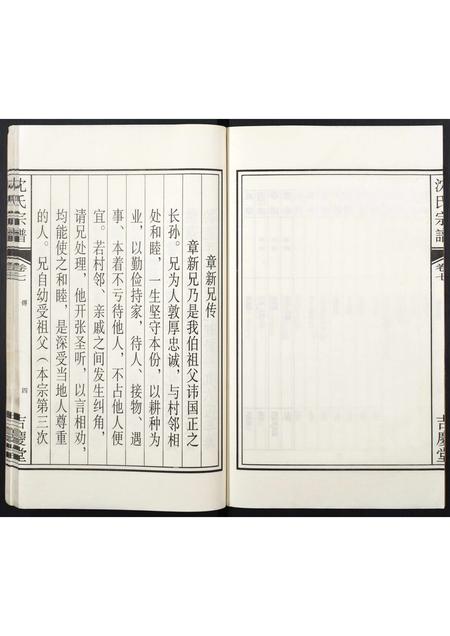 沈氏宗譜
卷七
吉慶堂
章新兄传
章新兄乃是我伯祖父讳国正之
长孙。兄为人敦厚忠诚，与村邻相
处和睦，一生坚守本份，以耕种为
业，以勤俭持家，待人、接物、遇
事、本着不亏待他人，不占他人便
宜。若村邻、亲戚之间发生纠角，
请兄处理，他开张圣听，以言相劝，
均能使之和睦，是深受当地人尊重
的人。兄自幼受祖父（本宗第三次
沈氏宗譜
卷七
傳
四
吉慶堂